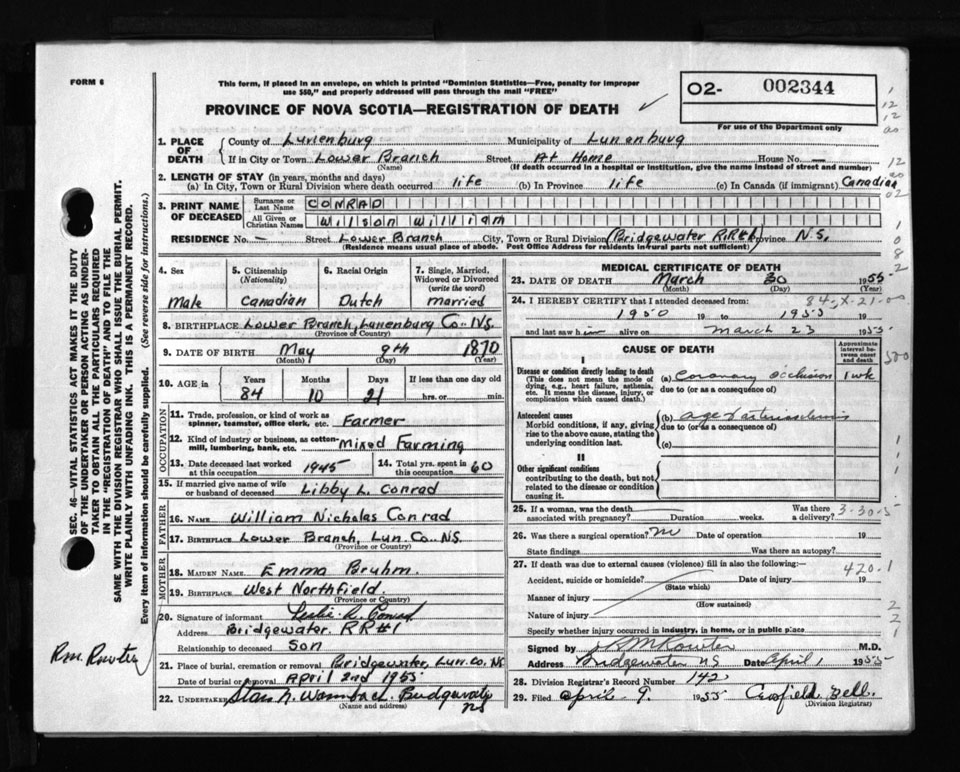 FORM 6
This form, if placed in an envelope, on which is printed "Dominion Statistics—Free, penalty for improper
use $50," and properly addressed will pass through the mail "FREE"
PROVINCE OF NOVA SCOTIA—REGISTRATION OF DEATH
02- 002344
For use of the Department only
SEC. 46—VITAL STATISTICS ACT MAKES IT THE DUTY
OF THE UNDERTAKER OR PERSON ACTING AS UNDER-
TAKER TO OBTAIN ALL THE PARTICULARS REQUIRED
IN THE "REGISTRATION OF DEATH" AND TO FILE THE
SAME WITH THE DIVISION REGISTRAR WHO SHALL ISSUE THE BURIAL PERMIT.
WRITE PLAINLY WITH UNFADING INK. THIS IS A PERMANENT RECORD.
Every item of information should be carefully supplied. (See reverse side for instructions.)
1. PLACE OF DEATH
County of Lunenburg Municipality of Lunenburg
If in City or Town Lower Branch Street At Home House No. —
(Name) (If death occurred in a hospital or institution, give the name instead of street and number)
2. LENGTH OF STAY (in years, months and days)
(a) In City, Town or Rural Division where death occurred life (b) In Province life (c) In Canada (if immigrant) Canadian
3. PRINT NAME OF DECEASED
Surname or Last Name CONRAD
All Given or Christian Names Wilson William
RESIDENCE No. — Street Lower Branch City, Town or Rural Division (Bridgewater R.R#1) Province N.S.
(Residence means usual place of abode. Post Office Address for residents in rural parts not sufficient)
4. Sex Male
5. Citizenship (Nationality) Canadian
6. Racial Origin Dutch
7. Single, Married, Widowed or Divorced (write the word) married
8. BIRTHPLACE Lower Branch, Lunenburg Co. N.S.
(Province or Country)
9. DATE OF BIRTH May 9th 1870
(Month) (Day) (Year)
10. AGE in Years 84 Months 10 Days 21 If less than one day old hrs. or min.
OCCUPATION
11. Trade, profession, or kind of work as spinner, teamster, office clerk, etc. Farmer
12. Kind of industry or business, as cotton-mill, lumbering, bank, etc. Mixed Farming
13. Date deceased last worked at this occupation 1945
14. Total yrs. spent in this occupation 60
15. If married give name of wife or husband of deceased Libby L. Conrad
FATHER
16. NAME William Nicholas Conrad
17. BIRTHPLACE Lower Branch, Lun. Co. N.S.
(Province or Country)
MOTHER
18. MAIDEN NAME Emma Bruhm.
19. BIRTHPLACE West Northfield.
(Province or Country)
20. Signature of informant Leslie L. Conrad
Address Bridgewater. RR#1
Relationship to deceased Son
21. Place of burial, cremation or removal Bridgewater, Lun. Co. NS
Date of burial or removal April 2nd 1955
22. UNDERTAKER Wambach. Bridgewater NS
(Name and address)
MEDICAL CERTIFICATE OF DEATH
23. DATE OF DEATH March 30 1955
(Month) (Day) (Year)
84-X-21-00
24. I HEREBY CERTIFY that I attended deceased from:
1950 19 to 1955 19
and last saw him alive on March 23 1955
CAUSE OF DEATH
Approximate interval between onset and death
I
Disease or condition directly leading to death
(This does not mean the mode of dying, e.g., heart failure, asthenia, etc. It means the disease, injury, or complication which caused death.)
(a) Coronary occlusion 1 wk
due to (or as a consequence of)
Antecedent causes
Morbid conditions, if any, giving rise to the above cause, stating the underlying condition last.
(b) age & arteriosclerosis
due to (or as a consequence of)
(c)
II
Other significant conditions
contributing to the death, but not related to the disease or condition causing it.
25. If a woman, was the death associated with pregnancy? Duration weeks. Was there a delivery?
3-30-5
26. Was there a surgical operation? no Date of operation 19
State findings Was there an autopsy?
27. If death was due to external causes (violence) fill in also the following:—
420.1
Accident, suicide or homicide? Date of injury 19
(State which)
Manner of injury
(How sustained)
Nature of injury
Specify whether injury occurred in industry, in home, or in public place
Signed by M.D.
Address Bridgewater NS Date April 1 1955
28. Division Registrar's Record Number 142
29. Filed April 9. 1955 Bell.
(Division Registrar)